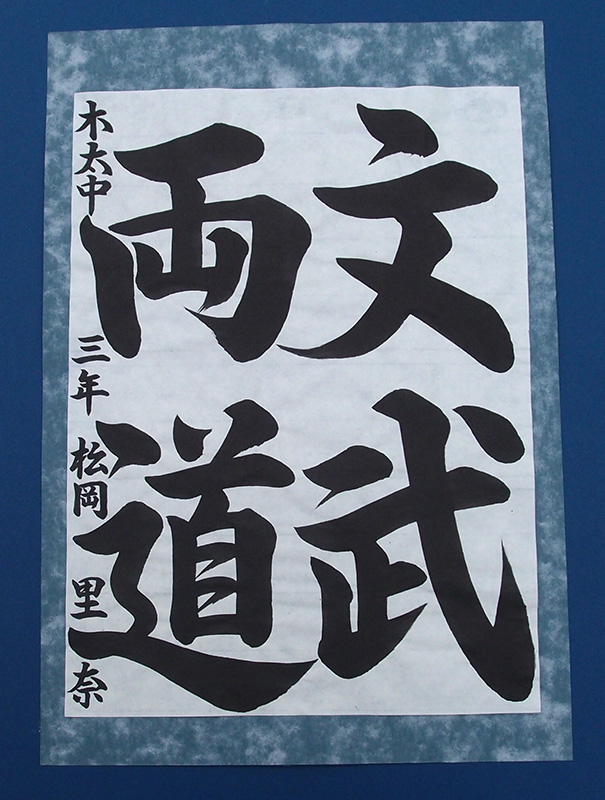 文武
両道
木太中 三年 松岡 里奈